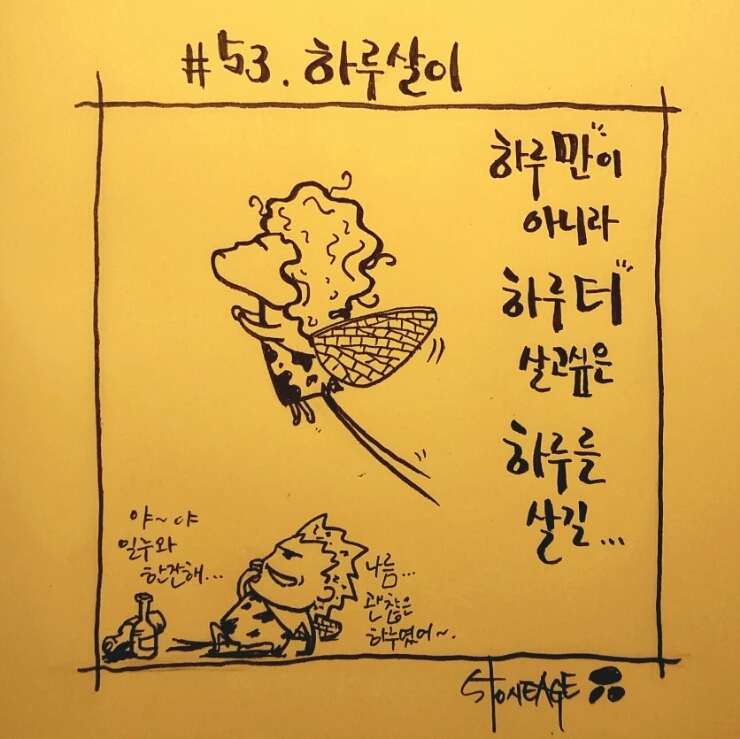 #53. 하루살이
하루만"이
아니라
하루더"
살고싶은
하루를
살길...
야~야
일누와
한잔해...
나름...
괜찮은
하루였어~.
STONEAGE